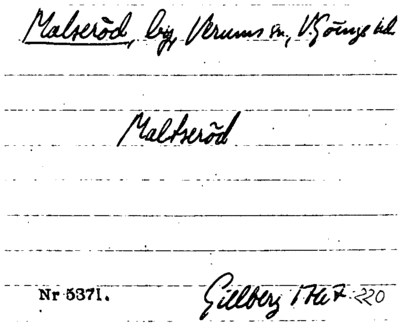 Malseröd, by, Verums sn., V. Göinge hd
Maltseröd
Nr 5371. Gillberg 1767 220